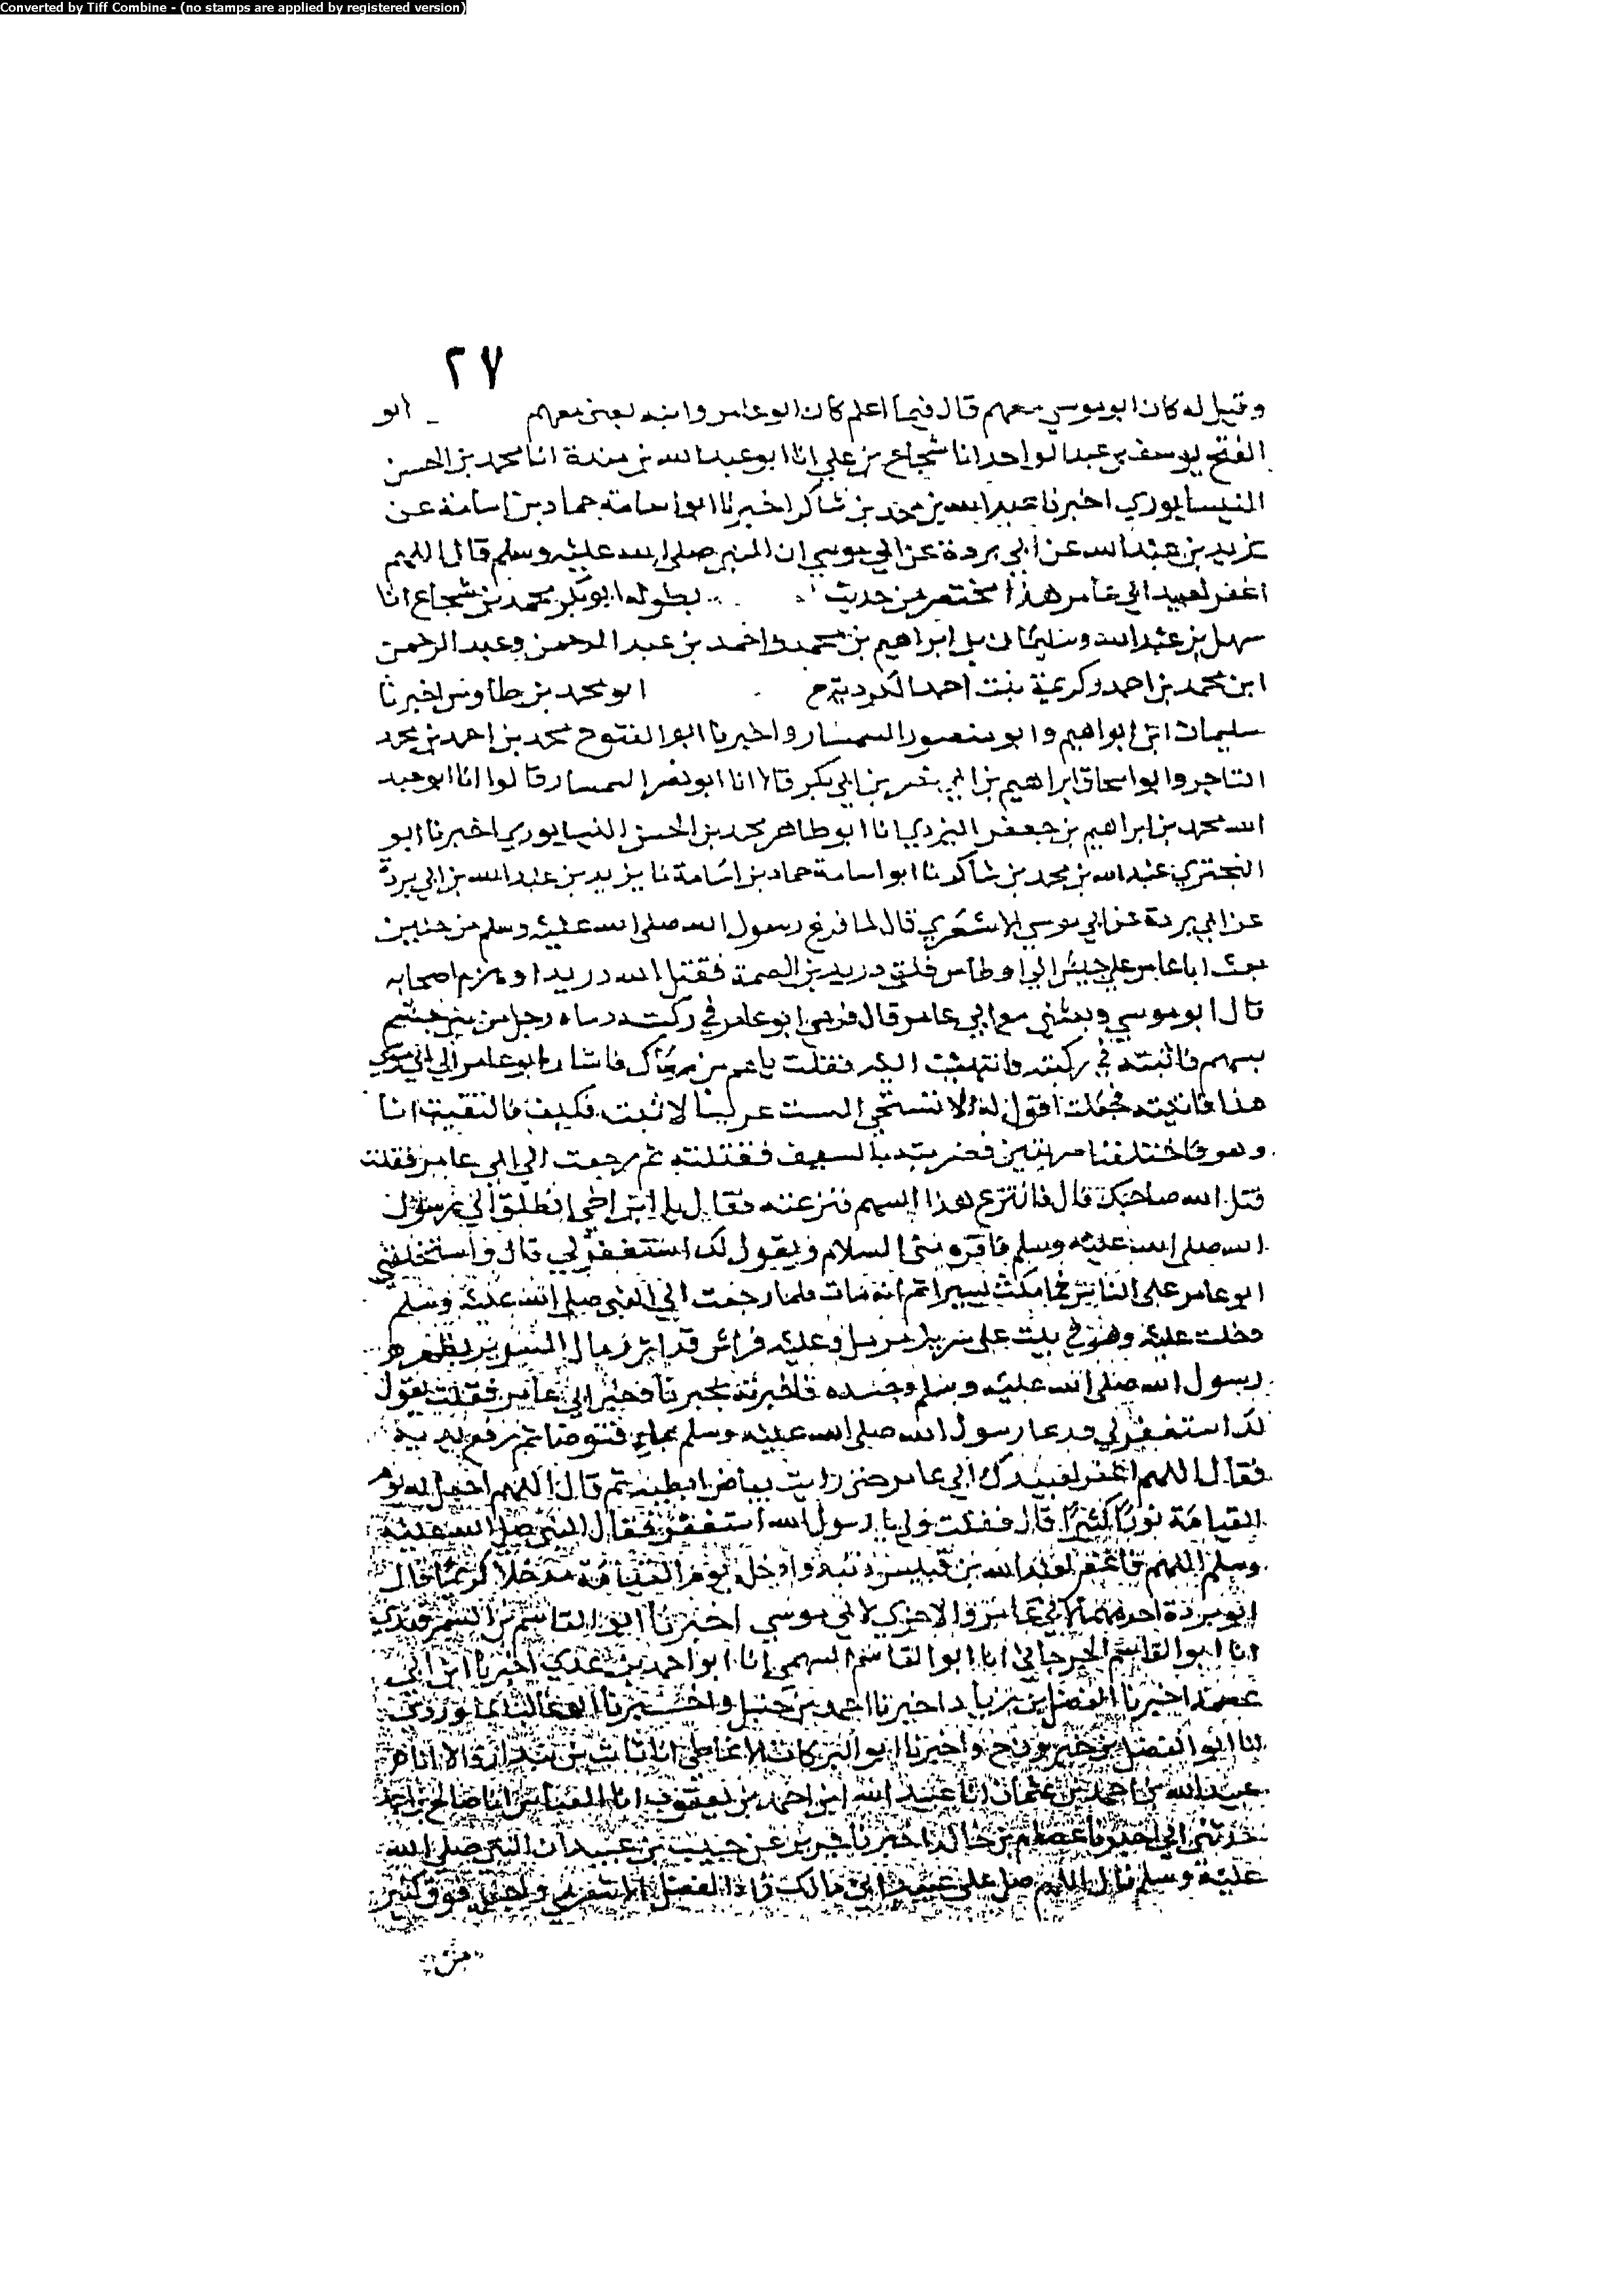 Converted by Tiff Combine - (no stamps are applied by registered version)
٢٧
وقيل له كان ابو موسي معهم قال فيما اعلم كان ابو عامر وابنه يعني معهم ابو
الفتح يوسف بن عبد الواحد انا شجاع بن علي انا ابو عبد الله بن مندة انا محمد بن الحسن
النيسابوري اخبرنا عبد الله بن محمد بن شاكر اخبرنا ابو اسامة حماد بن اسامة عن
بريد بن عبد الله عن ابي بردة عن ابي موسي ان النبي صلى الله عليه وسلم قال اللهم
اغفر لعبيد ابي عامر هذا مختصر من حديث بطوله ابو بكر محمد بن شجاع انا
سهل بن عبد الله وسليمان بن ابراهيم بن محمد واحمد بن عبد الرحمن وعبد الرحمن
ابن محمد بن احمد وكريمة بنت احمد الكردية ح ابو محمد بن طاوس اخبرنا
سليمان ابن ابراهيم وابو منصور السمسار واخبرنا ابو الفتوح محمد بن احمد بن محمد
التاجر وابو اسحاق ابراهيم بن ابي بكر قالا انا ابو نصر السمسار قالوا انا ابو عبد
الله محمد بن ابراهيم بن جعفر اليزدي انا ابو طاهر محمد بن الحسن النيسابوري اخبرنا ابو
البختري عبد الله بن محمد بن شاكر نا ابو اسامة حماد بن اسامة نا يزيد بن عبد الله بن ابي بردة
عن ابي بردة عن ابي موسي الاشعري قال لما فرغ رسول الله صلى الله عليه وسلم من حنين
بعث ابا عامر علي جيش الي اوطاس فلقي دريد بن الصمة فقتل الله دريدا وهزم اصحابه
قال ابو موسي وبعثني مع ابي عامر قال فرمي ابو عامر في ركبته رماه رجل من بني جشم
بسهم فاثبته في ركبته فانتهيت اليه فقلت يا عم من رماك فاشار ابو عامر الي ابي موسي
هذا فاتيته فجعلت اقول له الا تستحي الست عربيا لا تثبت فكيف فالتقيت انا
وهو فاختلفنا مرتين فضربته بالسيف فقتلته ثم رجعت الي ابي عامر فقلت
قتل الله صاحبك قال فانتزع هذا السهم فنزعته فقال يا ابن اخي انطلق الي رسول
الله صلى الله عليه وسلم فاقره مني السلام ويقول لك استغفر لي قال واستخلفني
ابو عامر على الناس فما مكث يسيرا ثم انه مات فلما رجعت الي النبي صلى الله عليه وسلم
دخلت عليه وهو في بيت على سرير مرمل وعليه فراش قد اثر رمال السرير بظهر
رسول الله صلى الله عليه وسلم وجنبه فاخبرته بخبرنا وخبر ابي عامر فقلت يقول
لك استغفر لي فدعا رسول الله صلى الله عليه وسلم بماء فتوضا ثم رفع يديه
فقال اللهم اغفر لعبيدك ابي عامر حتى رايت بياض ابطيه ثم قال اللهم اجعل له يوم
القيامة نورا كثيرا قال فقلت ولي يا رسول الله استغفر فقال النبي صلى الله عليه
وسلم اللهم فاغفر لعبد الله بن قيس ذنبه وادخله يوم القيامة مدخلا كريما قال
ابو بردة احدهما لابي عامر والاخري لابي موسي اخبرنا ابو القاسم بن السمرقندي
انا ابو القاسم الجرجاني انا ابو القاسم السهمي انا ابو احمد بن عدي اخبرنا ابن ابي
عصمة اخبرنا الفضل بن زياد اخبرنا احمد بن حنبل واخبرنا ابو غالب الماوردي
انا ابو الفضل بن خيرون ح واخبرنا ابو البركات الانماطي انا ثابت بن بندار قالا انا
عبيد الله بن احمد بن عثمان انا عبيد الله ابن احمد بن يعقوب انا العباس انا صالح بن احمد
حدثني ابي اخبرنا عصام بن خالد اخبرنا حريز عن حبيب بن عبيد ان النبي صلى الله
عليه وسلم قال اللهم صل على عبيد ابي مالك زاد الفضل الاشعري واجعله فوق كثير
من